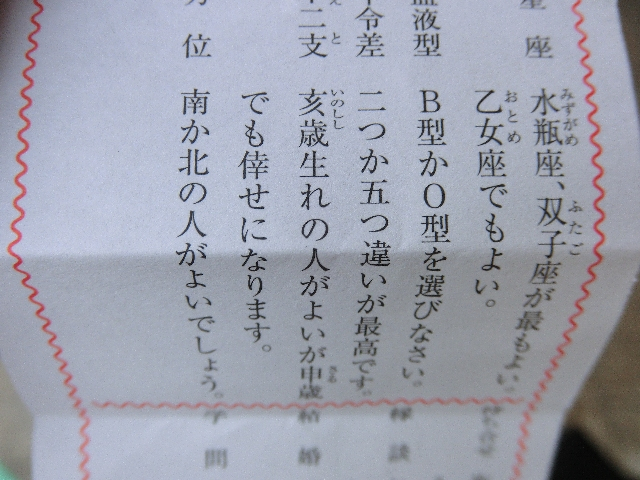 星座 水瓶座、双子座が最もよい。
乙女座でもよい。
血液型 B型かO型を選びなさい。
年令差 二つか五つ違いが最高です。
十二支 亥歳生れの人がよいが申歳
でも倖せになります。
方位 南か北の人がよいでしょう。
待ち合せ
縁談
結婚
学問